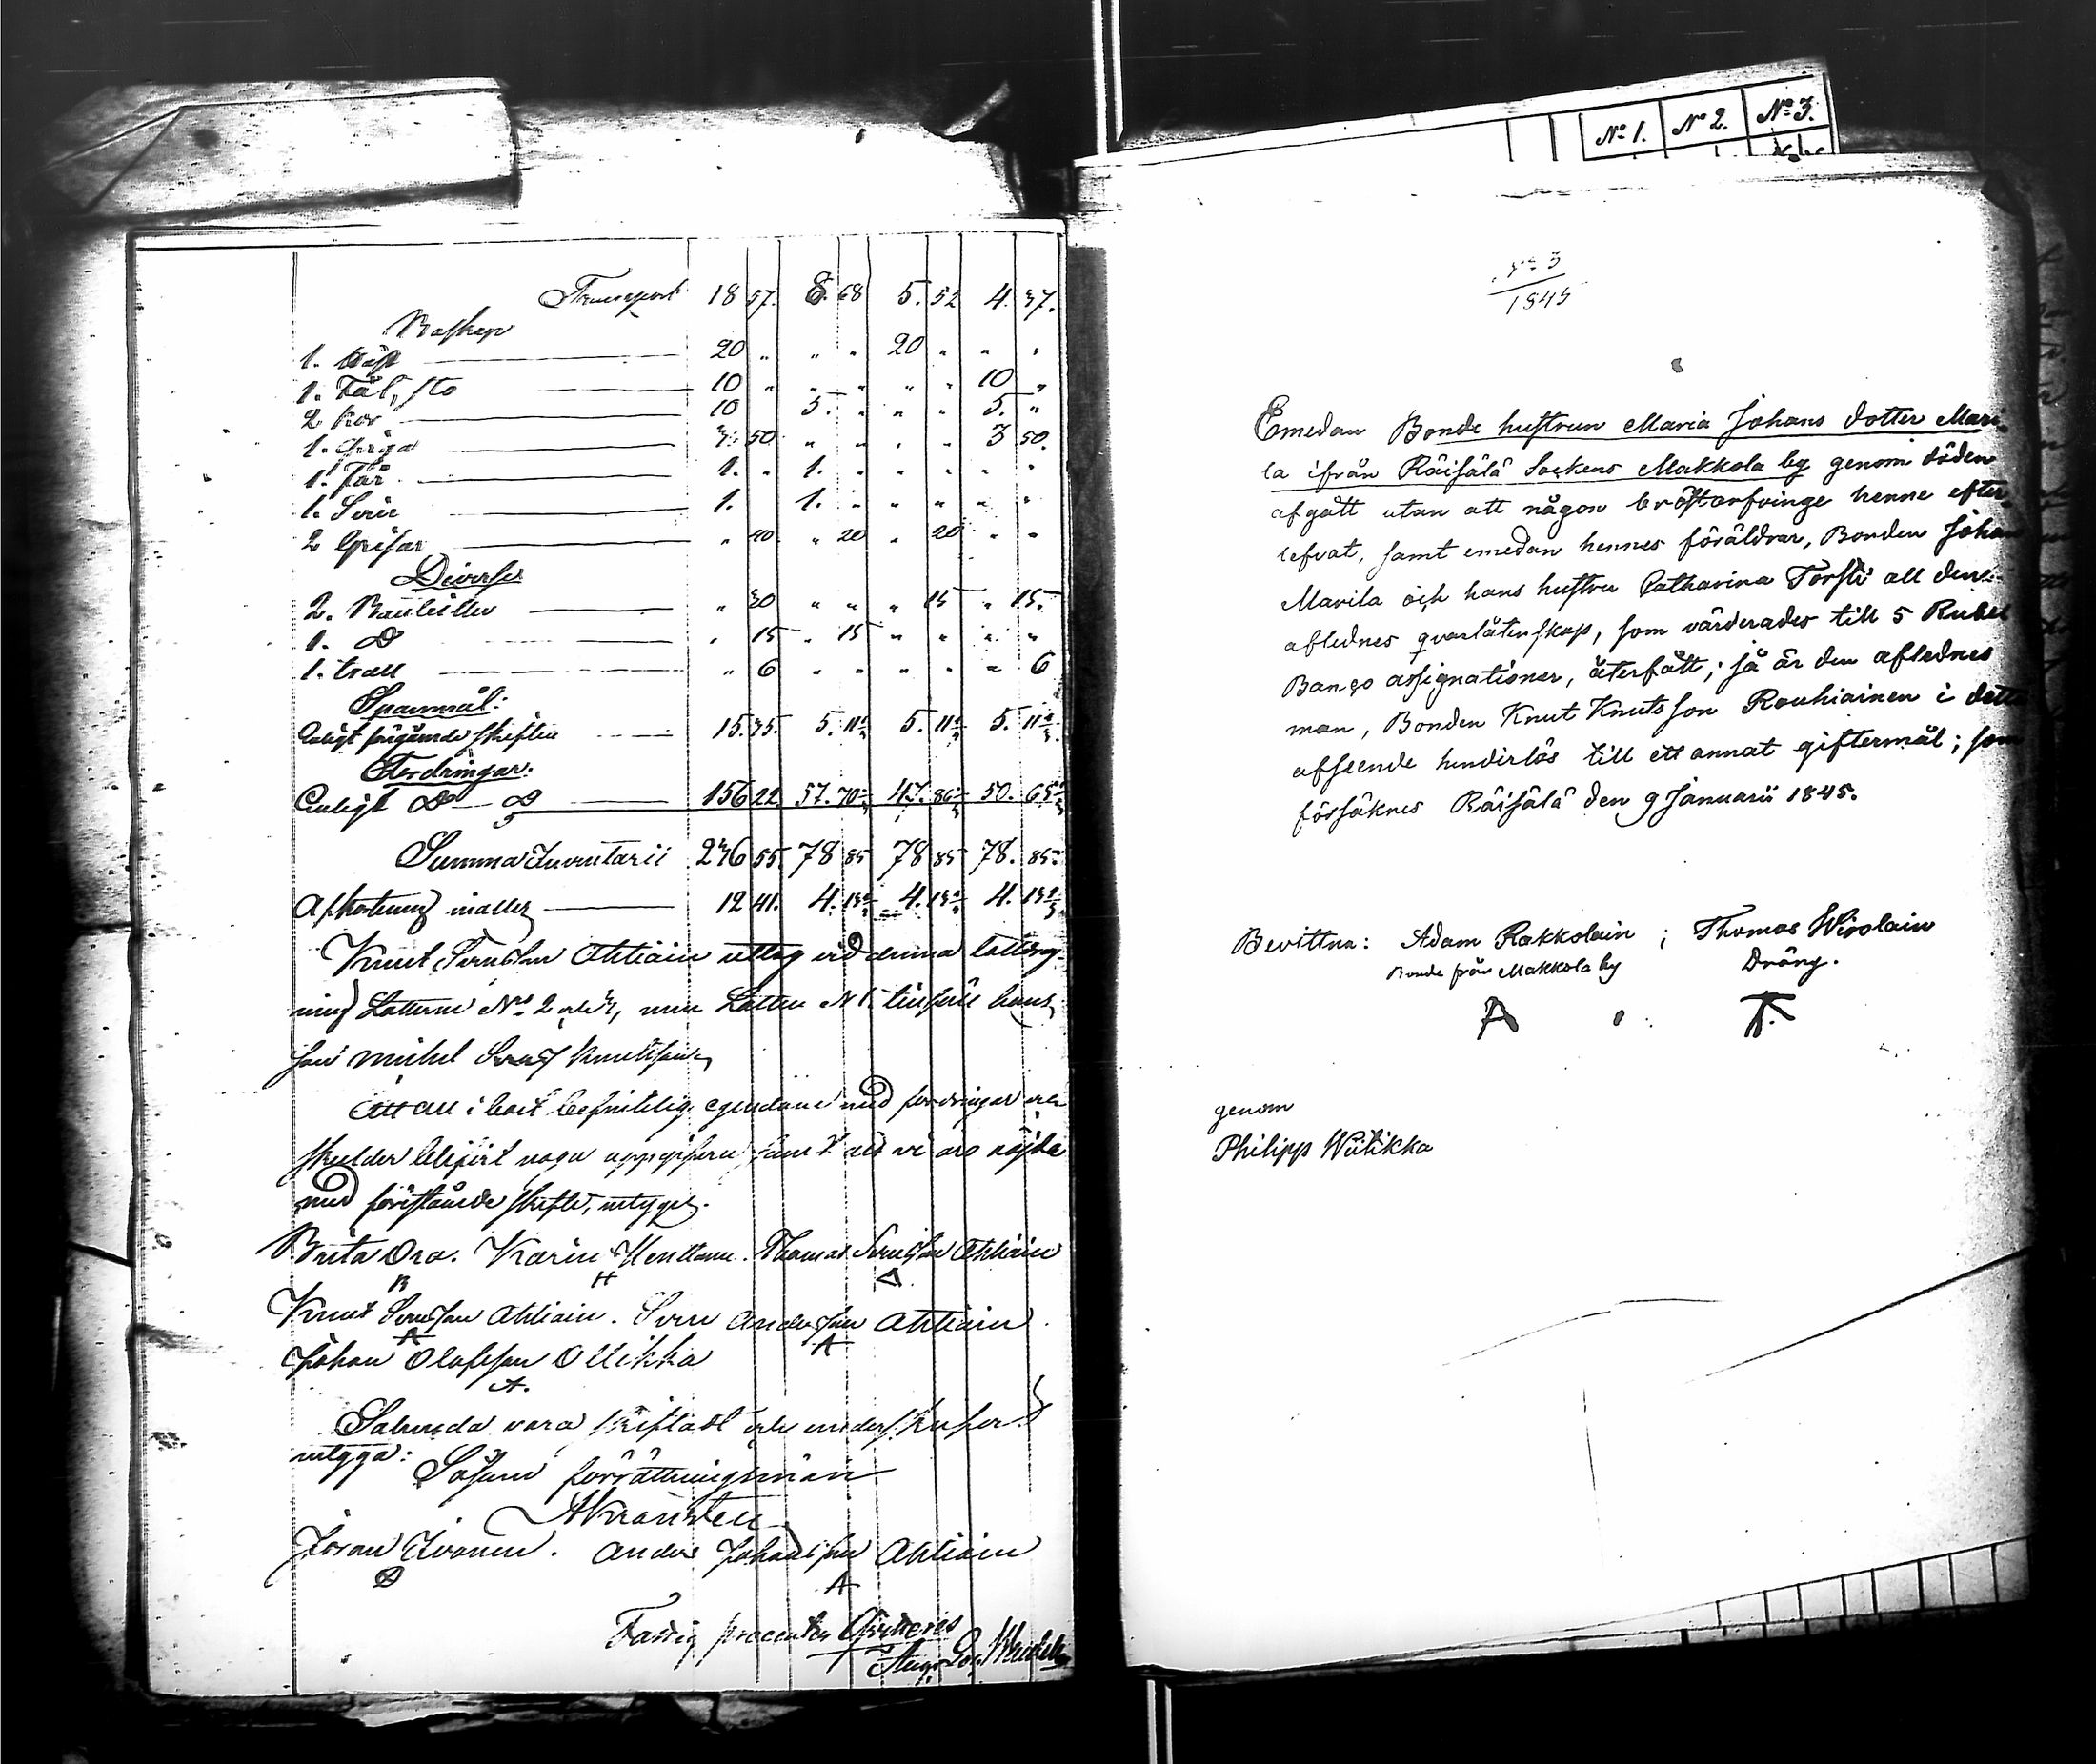 Transport 18 57. 8. 68 5. 52 4. 37.
Boskap
1. Häst 20 „ „ „ 20 „ „ „
1. Föl, sto 10 „ „ „ „ „ 10 „
2 kor 10 5. „ „ „ 5. „
1. qviga 3. 50 „ „ „ „ 3 50.
1. Får 1. „ 1. „ „ „ „ „
1. Svin 1. 1. „ „ „ „ „
2 Grisar „ 40 „ 20 „ 20 „ „
Diverse
2. „ 30 „ „ „ 15 „ 15.
1. D „ 15 „ 15 „ „ „ „
1. „ 6 „ „ „ „ „ 6
Spannmål:
Enligt föregående skiften 15. 35. 5. 11 2/3 5. 11 2/3 5. 11 2/3
Fordringar:
Enligt D D 156 22 57. 70 47. 86 50. 65
Summa Inventarii 236 55. 78 85 78 85 78. 85
Afkortning 12 41. 4. 13 2/3 4. 13 2/3 4. 13 2/3
Knut Svensson Ahtiain uttog vid denna lottdrag-
ning Lotterne No 2 och 3, men Lotten N 1. tillföll hans
son Michel Knutsson
Att all i boet befintlig egendom med fordringar och
skulder blifvit noga uppgifven samt att vi äro nöjda
med förestående skifte, intygas.
Brita Ora. Karin Henttonen. Thomas Svensson Ahtiain
B H
Knut Svensson Ahtiain. Sven Andersson Ahtiain
A A
Johan Olofsson Ollikka
A.
Sålunda vara skiftadt och underskrifvet
intyga:
Såsom förrättningsmän
Jöran Ivonen. Anders Johansson Ahtiain
A
Fattig procenten
No 3
1845
No 1. No 2. No 3.
Emedan Bonde hustrun Maria Johans dotter Mari-
la ifrån Räisälä Sockens Makkola by genom döden
afgått utan att någon bröstarfvinge henne efter-
lefvat, samt emedan hennes föräldrar, Bonden Johan
Marila och hans hustru Catharina Torsti all den
aflednes qvarlåtenskap, som värderades till 5 Rubel
Banco assignationer, återfått; så är den aflednes
man, Bonden Knut Knutsson Rouhiainen i detta
afseende hinderlös till ett annat giftermål; som
försäkras Räisälä den 9 Januarii 1845.
Bevittna: Adam Rakkolain ; Thomas Wirolain
Bonde från Makkola by Dräng.
A T.
genom
Philipp Wiitikka